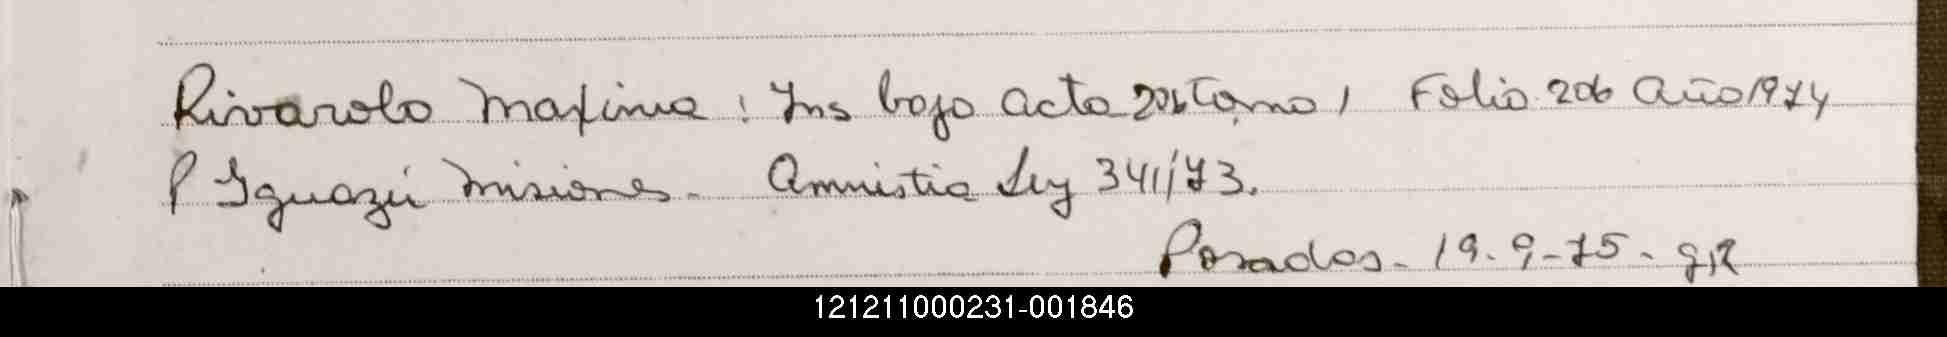 Rivarola Maxima: Ins bajo acta 206 Tomo 1 Folio 206 Año 1974
P Iguazú Misiones - Amnistia Ley 341/73.
Posadas - 19-9-75 -
121211000231-001846